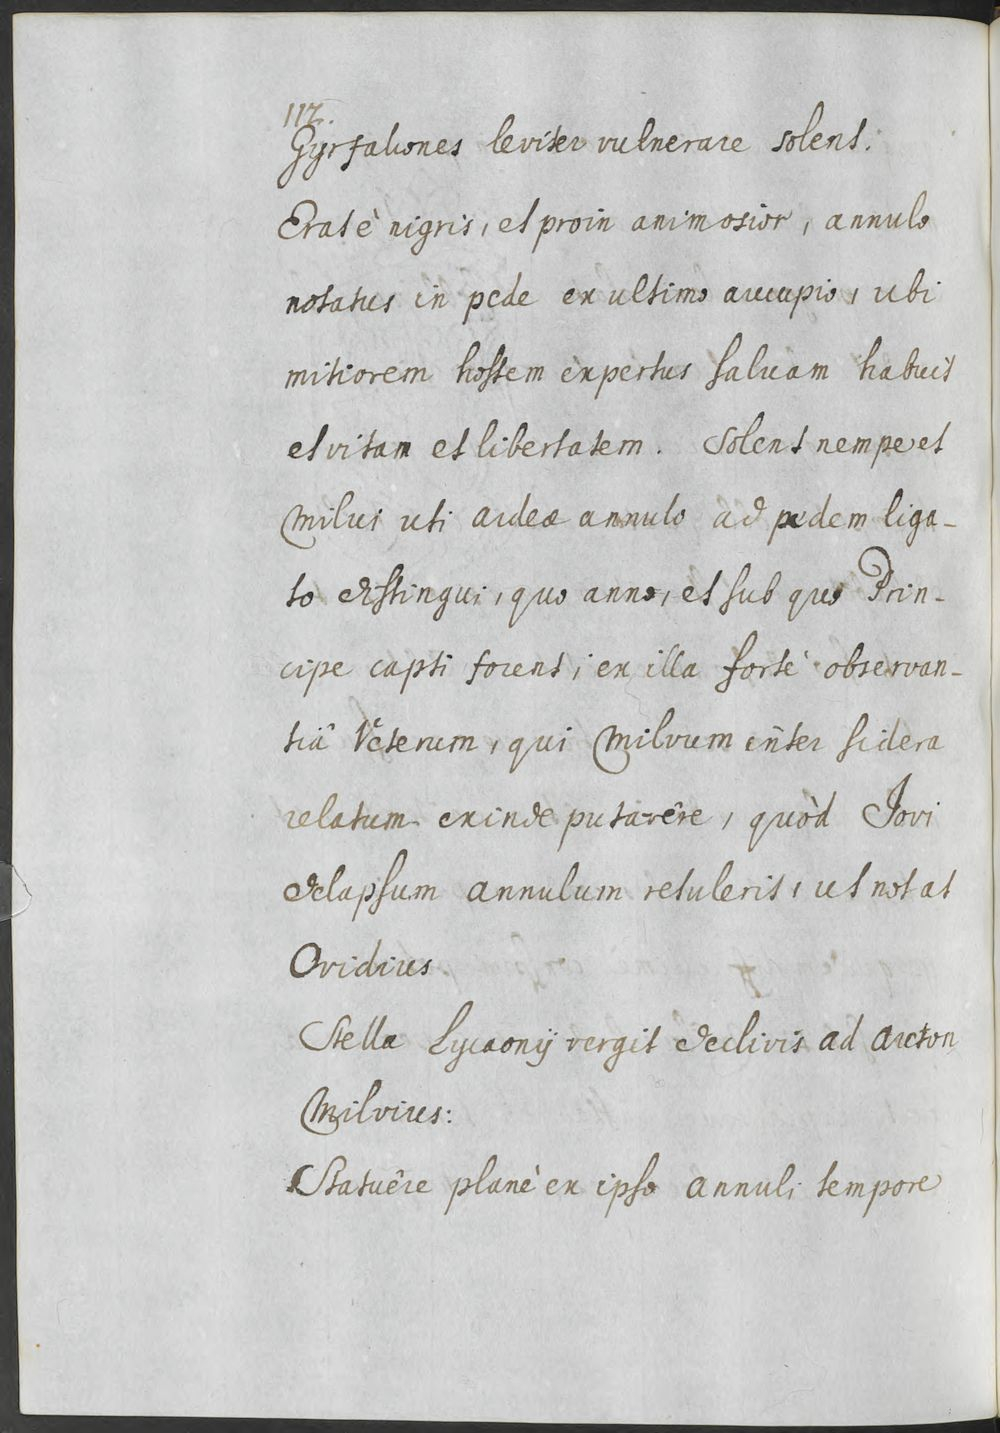 112.
Gyrfalcones leviter vulnerare solent.
Erat è nigris, et proin animosior, annulo
notatus in pede ex ultimo aucupio, ubi
mitiorem hostem expertus salvam habuit
et vitam et libertatem. Solent nempe et
Milvi uti ardeæ annulo ad pedem liga-
to distingui, quo anno, et sub quo Prin-
cipe capti forent; ex illa fortè observan-
tiâ Veterum, qui Milvum inter sidera
relatum exinde putavêre, quòd Jovi
delapsum annulum retulerit, ut notat
Ovidius
Stella Lycaonij vergit declivis ad arcton
Milvius:
Statuêre planè ex ipso annuli tempore